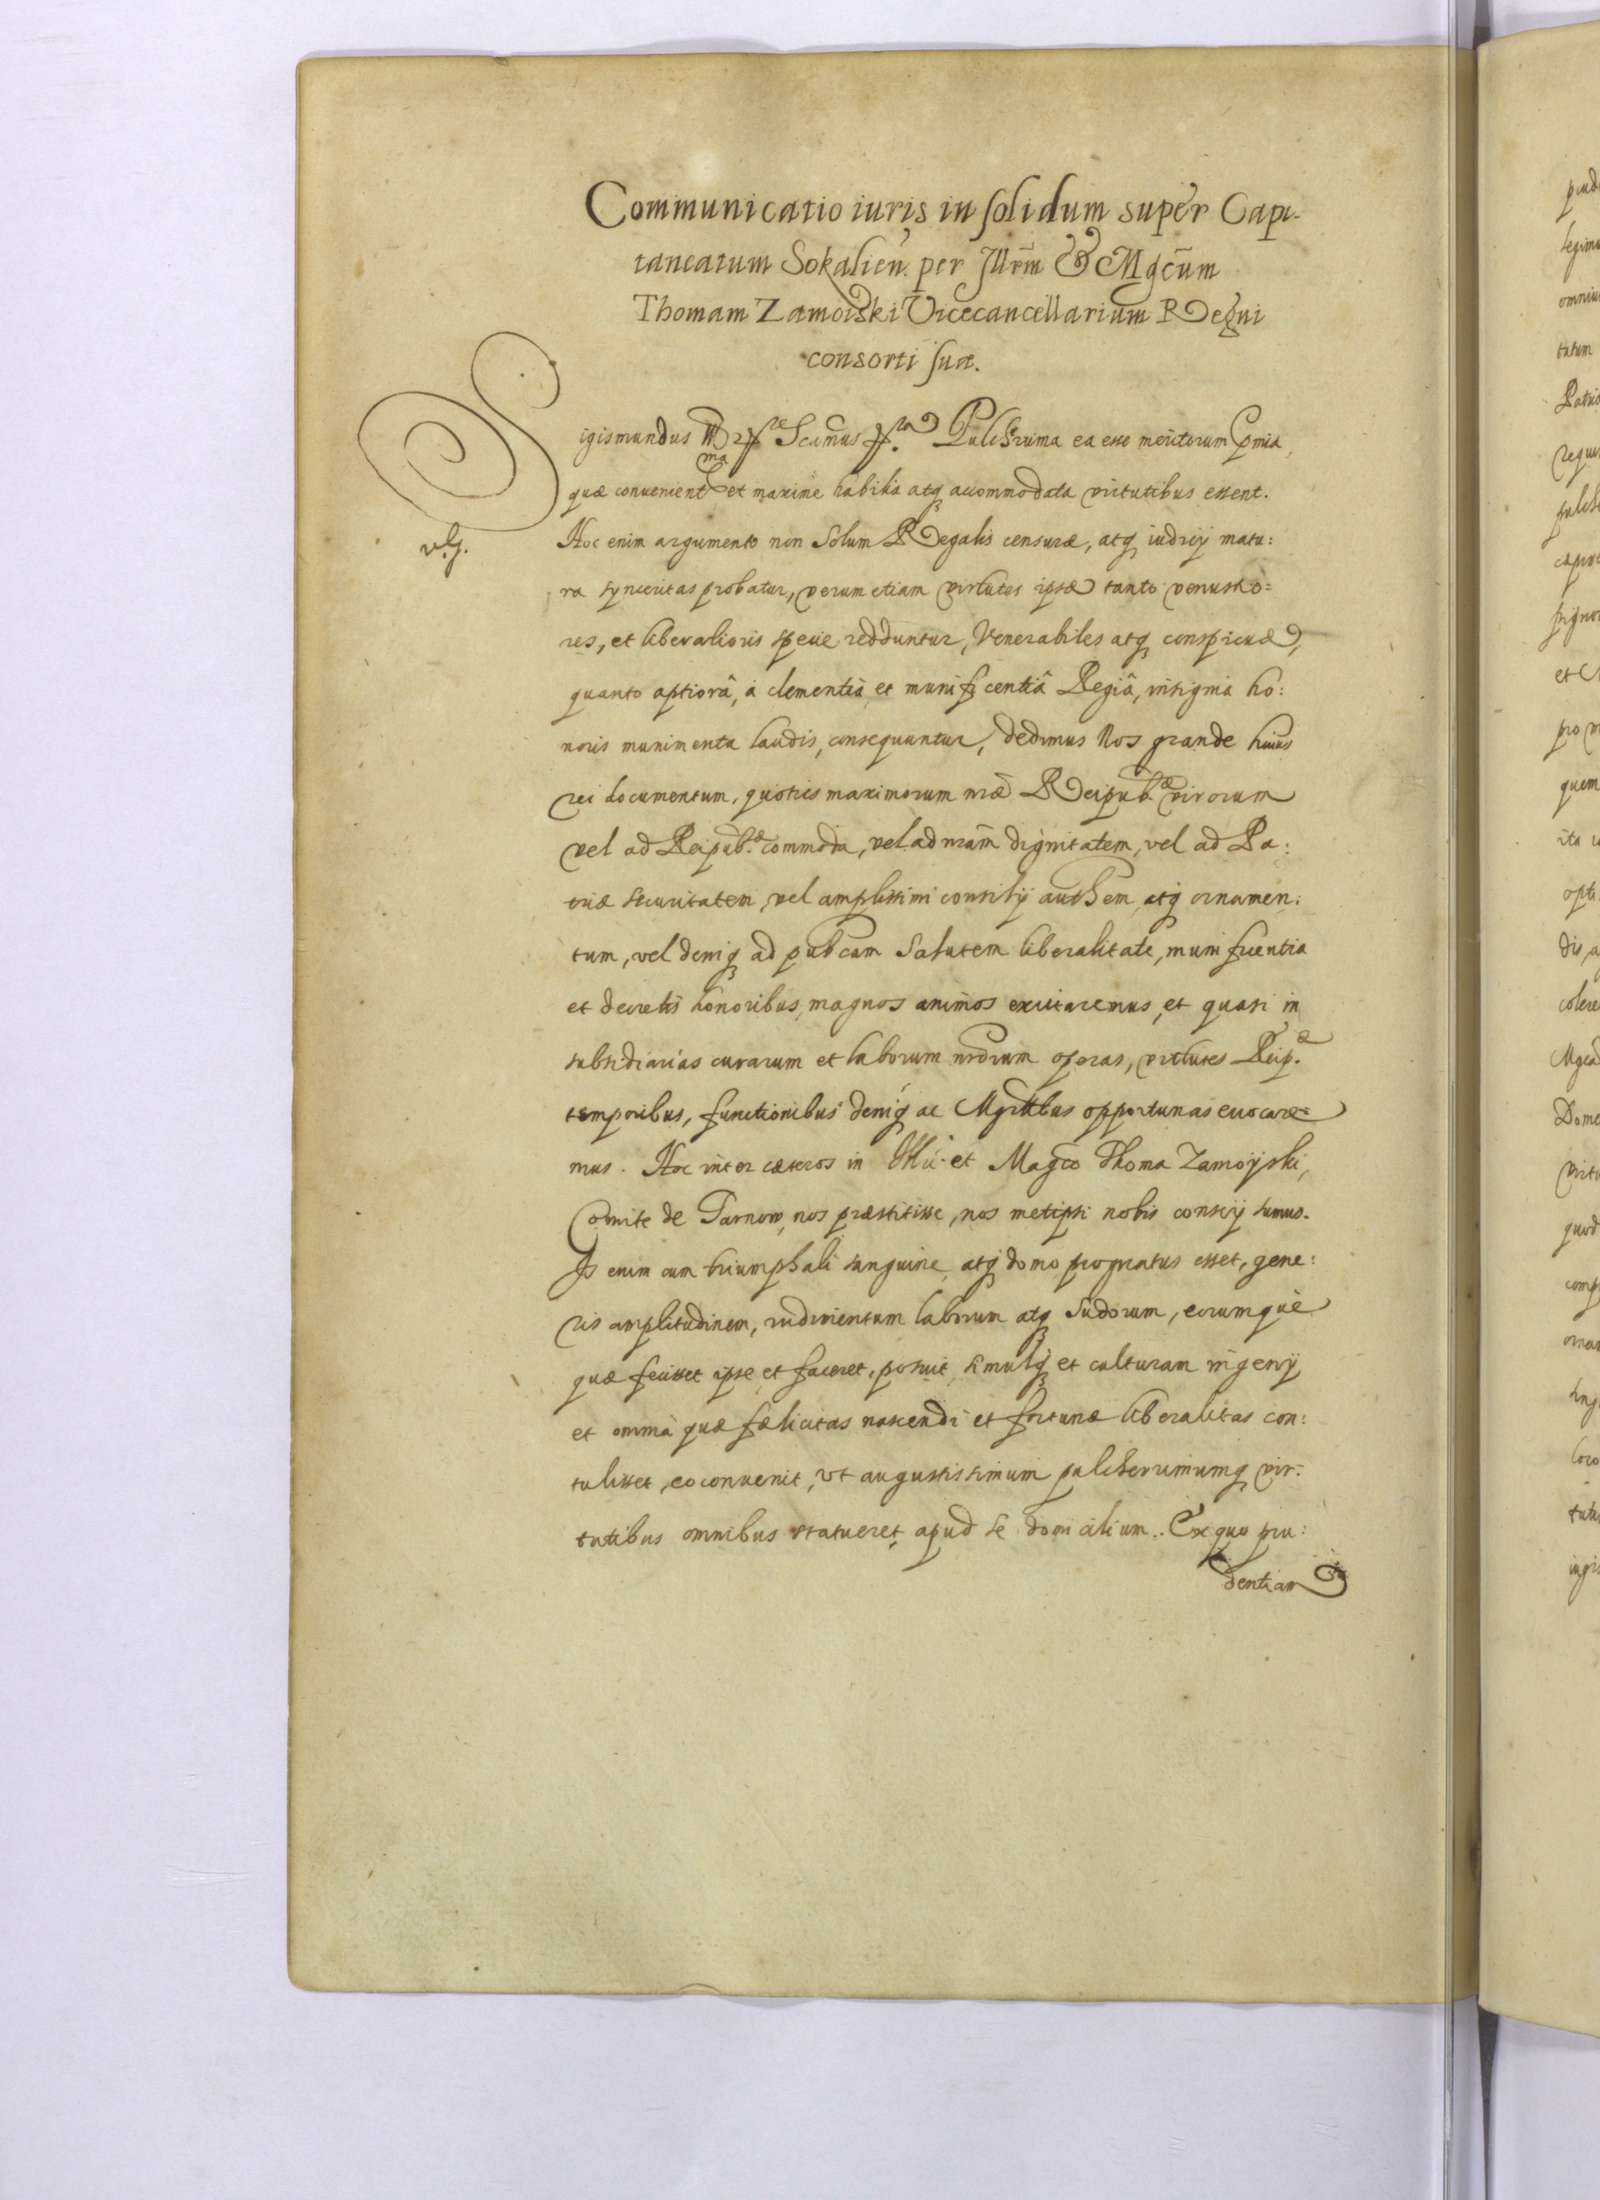 Communicatio iuris in solidum super Capi-
taneatum Sokalien. per Illrm̃ & Mgcũm
Thomam Zamoiski Vicecancellarium Regni
consorti suæ.
Sigismundus III Scimus Pulcherrima ea esse meritorum pmia,
quæ convenientma et maxime habilia atq accommodata virtutibus essent.
Hoc enim argumento non solum Regalis censuræ, atq iudicij matu:
ra synceritas probatur, verum etiam virtutes ipsæ tanto venustio:
res, et liberalioris specie redduntur, Venerabiles atq conspicuæ,
quanto aptiorâ, a clementiâ et munificentiâ Regiâ, insignia ho:
noris munimenta laudis, consequuntur, dedimus Nos grande huius
rei documentum, quoties maximorum nræ Reipub.æ virorum
vel ad Reipub.æ commoda, vel ad nram dignitatem, vel ad Pa:
triæ securitatem, vel amplissimi consilij authem atq ornamen:
tum, vel deniq ad pubcam Salutem liberalitate, munificentia
et decretis honoribus, magnos animos excitaremus, et quasi in
subsidiarias curarum et laborum nrorum operas, virtutes Reip.æ
temporibus, functionibus deniq ac Mgrtibus opportunas euocare=
mus. Hoc inter cæteros in Illri et Magco Thoma Zamoyski,
Comite de Tarnow, nos præstitisse, nos metipsi nobis conscij sumus.
Is enim cum triumphali sanguine, atq domo prognatus esset, gene:
ris amplitudinem, rudimentum laborum atq sudorum, eorumquè
quæ fecisset ipse et faceret, posuit, simulq et culturam ingenij
et omnia quæ fælicitas nascendi et fortunæ liberalitas con:
tulisset, eo convenit, vt augustissimum pulcherrimumq vir:
tutibus omnibus statueret apud se domicilium. Ex quo pru:
dentiam